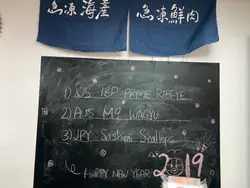 急凍海產
急凍鮮肉
1) US IBP PRIME RIBEYE
2) AUS M9 WAGYU
3) JPY Sashimi Scallops
HAPPY NEW YEAR 2019